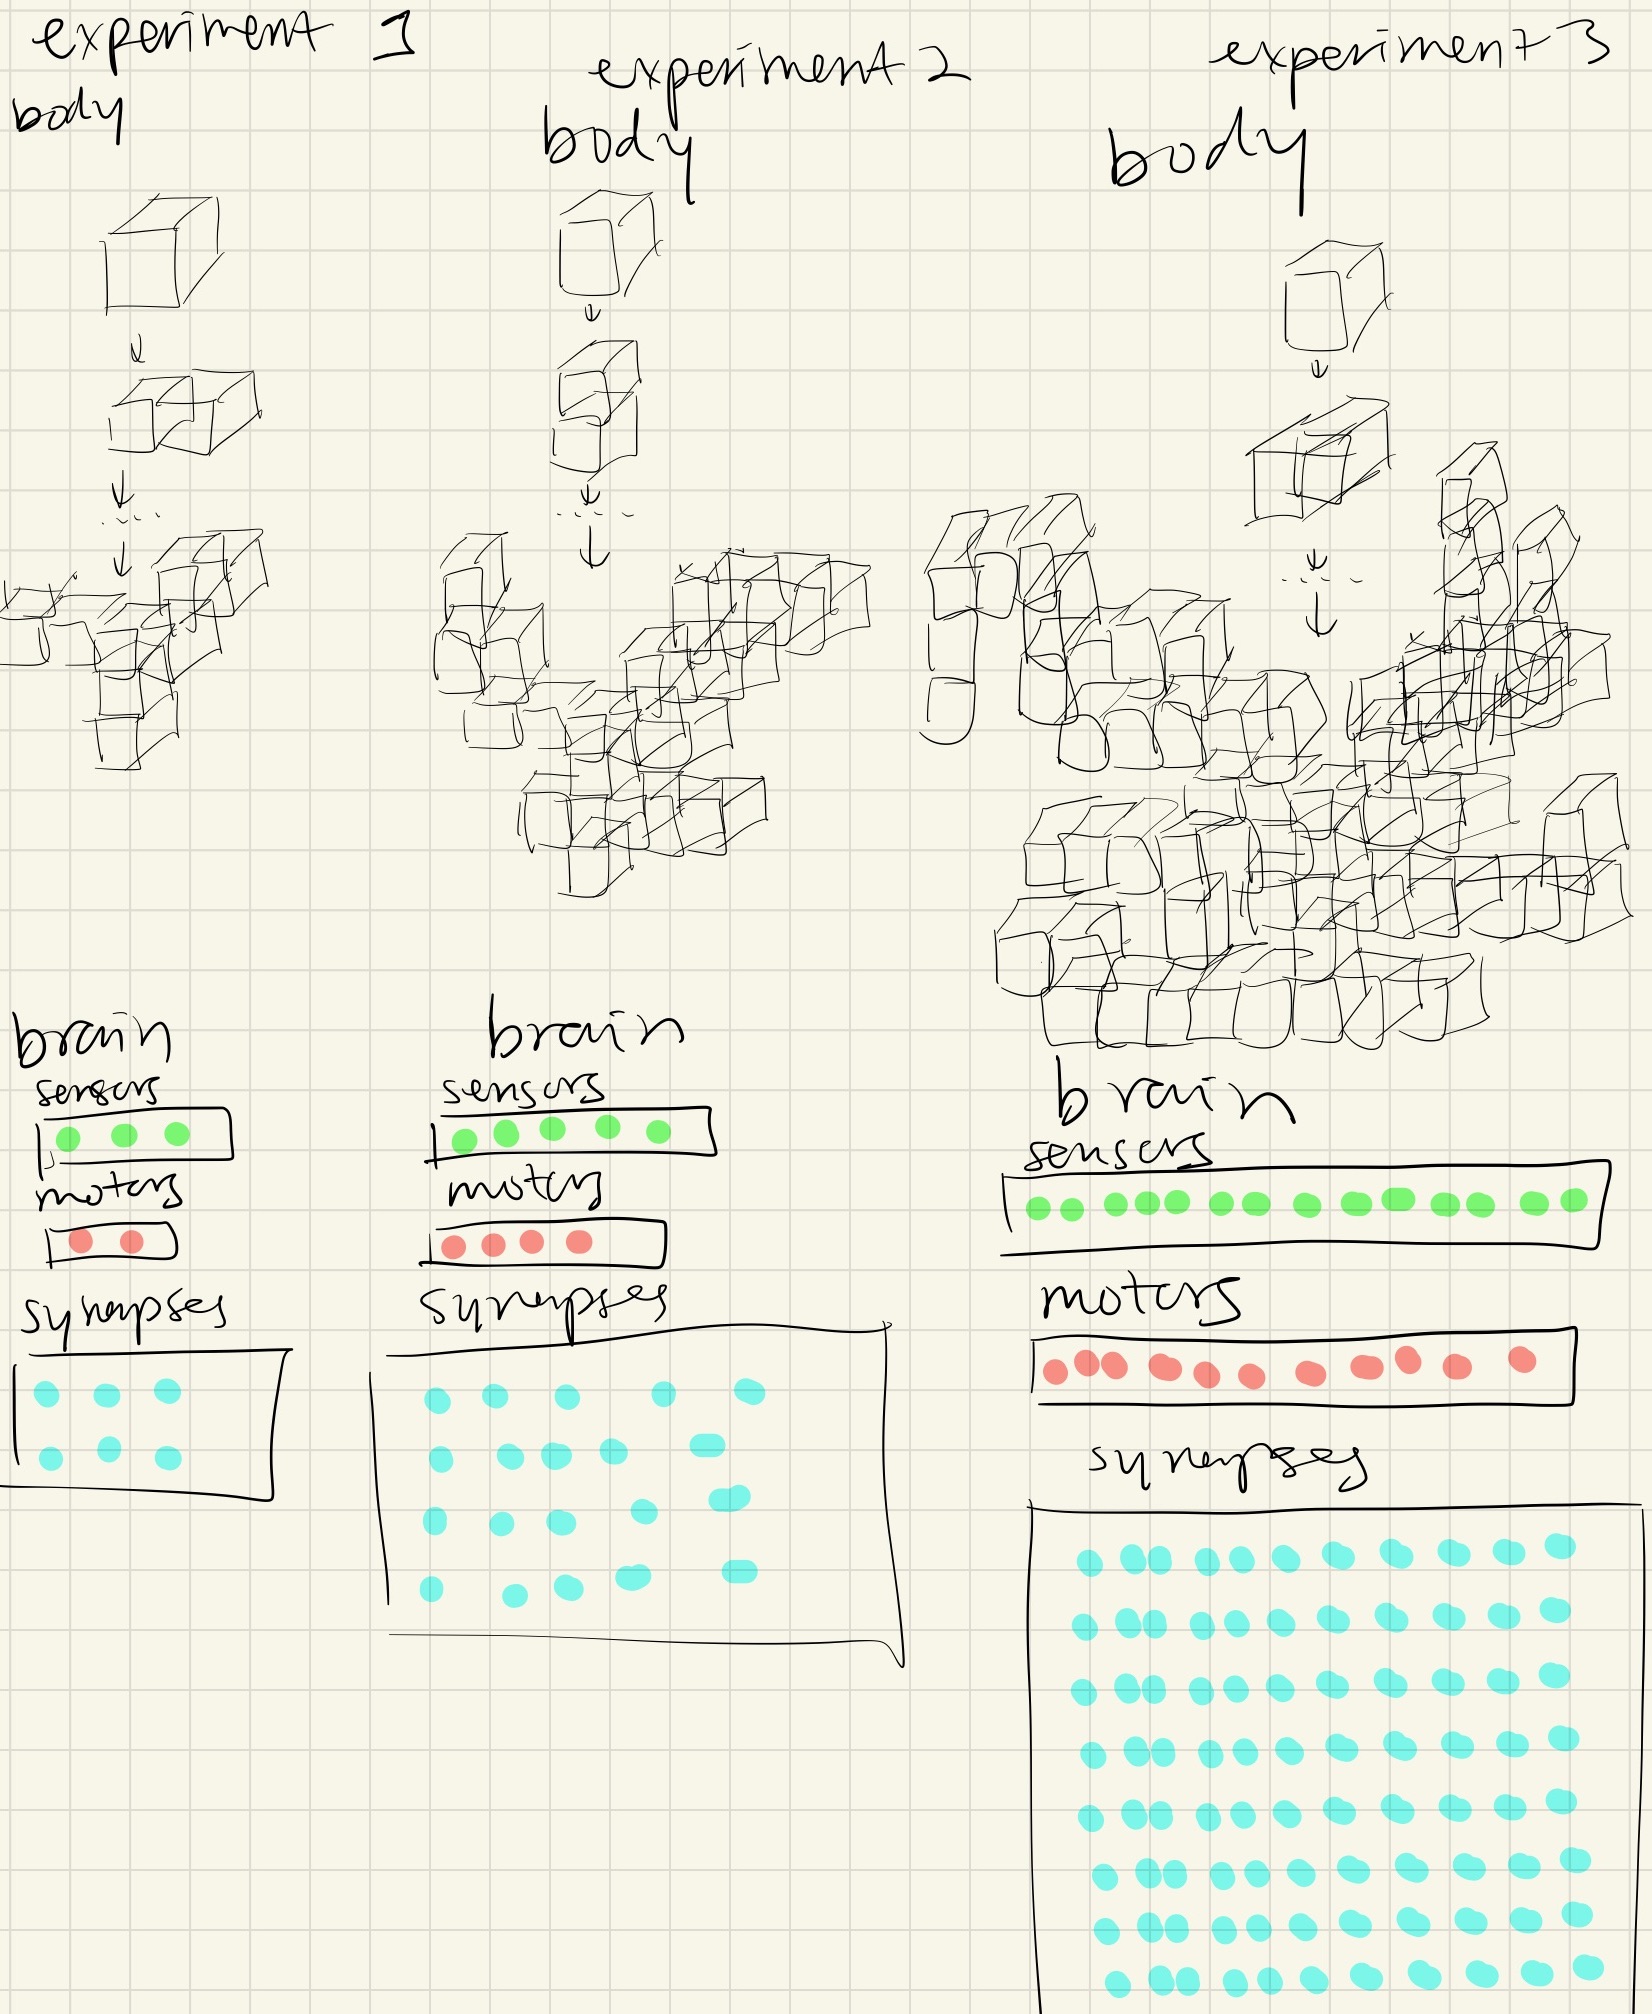 experiment 1
body
brain
sensors
motors
synapses
experiment 2
body
brain
sensors
motors
synapses
experiment 3
body
brain
sensors
motors
synapses